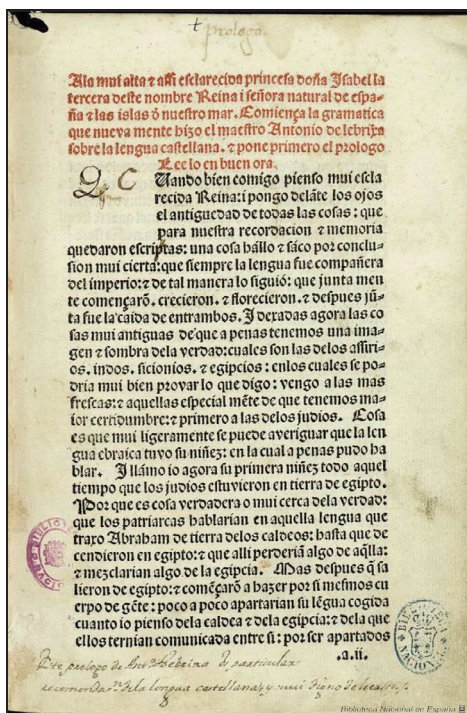 † prologo.
Ala mui alta ⁊ assi esclarecida princesa doña Isabel la
tercera deste nombre Reina i señora natural de espa-
ña ⁊ las islas d̃ nuestro mar. Comiença la gramatica
que nueva mente hizo el maestro Antonio de lebrixa
sobre la lengua castellana. ⁊ pone primero el prologo
Lee lo en buen ora.
C Uando bien comigo pienso mui escla
recida Reina: i pongo delãte los ojos
el antiguedad de todas las cosas: que
para nuestra recordacion ⁊ memoria
quedaron escriptas: una cosa hállo ⁊ sáco por conclu-
sion mui cierta: que siempre la lengua fue compañera
del imperio: ⁊ de tal manera lo siguió: que junta men
te començarõ. crecieron. ⁊ florecieron. ⁊ despues jũ-
ta fue la caida de entrambos. I dexadas agora las co
sas mui antiguas de que a penas tenemos una ima-
gen ⁊ sombra dela verdad: cuales son las delos assiri-
os. indos. sicionios. ⁊ egipcios: enlos cuales se po-
dria mui bien provar lo que digo: vengo a las mas
frescas: ⁊ aquellas especial mẽte de que tenemos ma-
ior certidumbre: ⁊ primero a las delos judios. Cosa
es que mui ligeramente se puede averiguar que la len
gua ebraica tuvo su niñez: en la cual a penas pudo ha
blar. I llámo io agora su primera niñez todo aquel
tiempo que los judios estuvieron en tierra de egipto.
Por que es cosa verdadera o mui cerca dela verdad:
que los patriarcas hablarian en aquella lengua que
traxo Abraham de tierra delos caldeos: hasta que de
cendieron en egipto: ⁊ que alli perderiã algo de aq̃lla:
⁊ mezclarian algo de la egipcia. Mas despues q̃ sa
lieron de egipto: ⁊ começarõ a hazer por si mesmos cu
erpo de gẽte: poco a poco apartarian su lẽgua cogida
cuanto io pienso dela caldea ⁊ dela egipcia: ⁊ dela que
ellos ternian comunicada entre si: por ser apartados
.a.ii.
Este prologo de Ant. Nebrixa es particular
de la lengua castellana, y mui digno de
Biblioteca Nacional de España